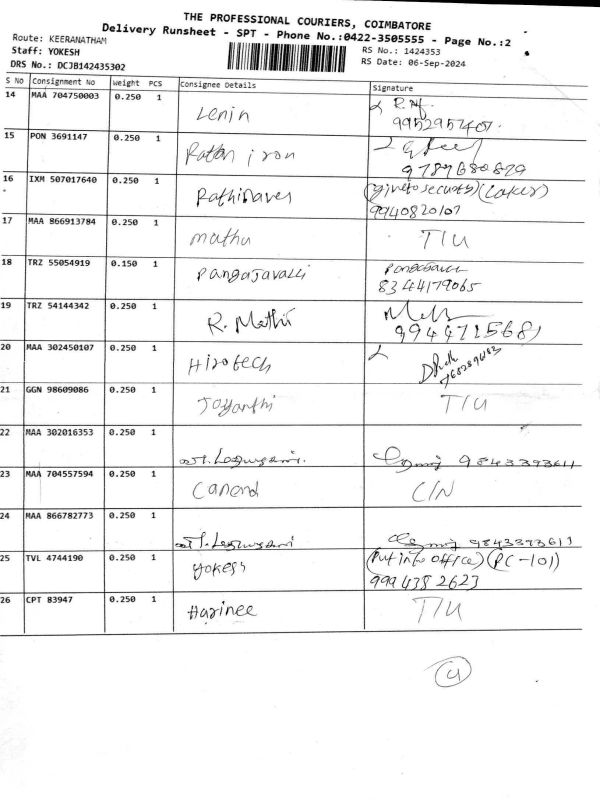 THE PROFESSIONAL COURIERS, COIMBATORE
Delivery Runsheet - SPT - Phone No.:0422-3505555 - Page No.:2
Route: KEERANATHAM
Staff: YOKESH
DRS No.: DCJB142435302
RS No.: 1424353
RS Date: 06-Sep-2024
S No Consignment No Weight PCS Consignee Details Signature
14 MAA 704750003 0.250 1 Lenin
9952957407
15 PON 3691147 0.250 1 Rattan iron
9789680829
16 IXM 507017640 0.250 1 (give to security)
9940820107
17 MAA 866913784 0.250 1 mathu T/U
18 TRZ 55054919 0.150 1 Pangajavalli
8344179065
19 TRZ 54144342 0.250 1 R. Mathi
9944715681
20 MAA 302450107 0.250 1 Hirotech
21 GGN 98609086 0.250 1 Jayanthi T/U
22 MAA 302016353 0.250 1 9843393611
23 MAA 704557594 0.250 1 C/N
24 MAA 866782773 0.250 1 9843393611
25 TVL 4744190 0.250 1 Yokesh (Put into office) (PC-101)
9994382623
26 CPT 83947 0.250 1 Harinee T/U